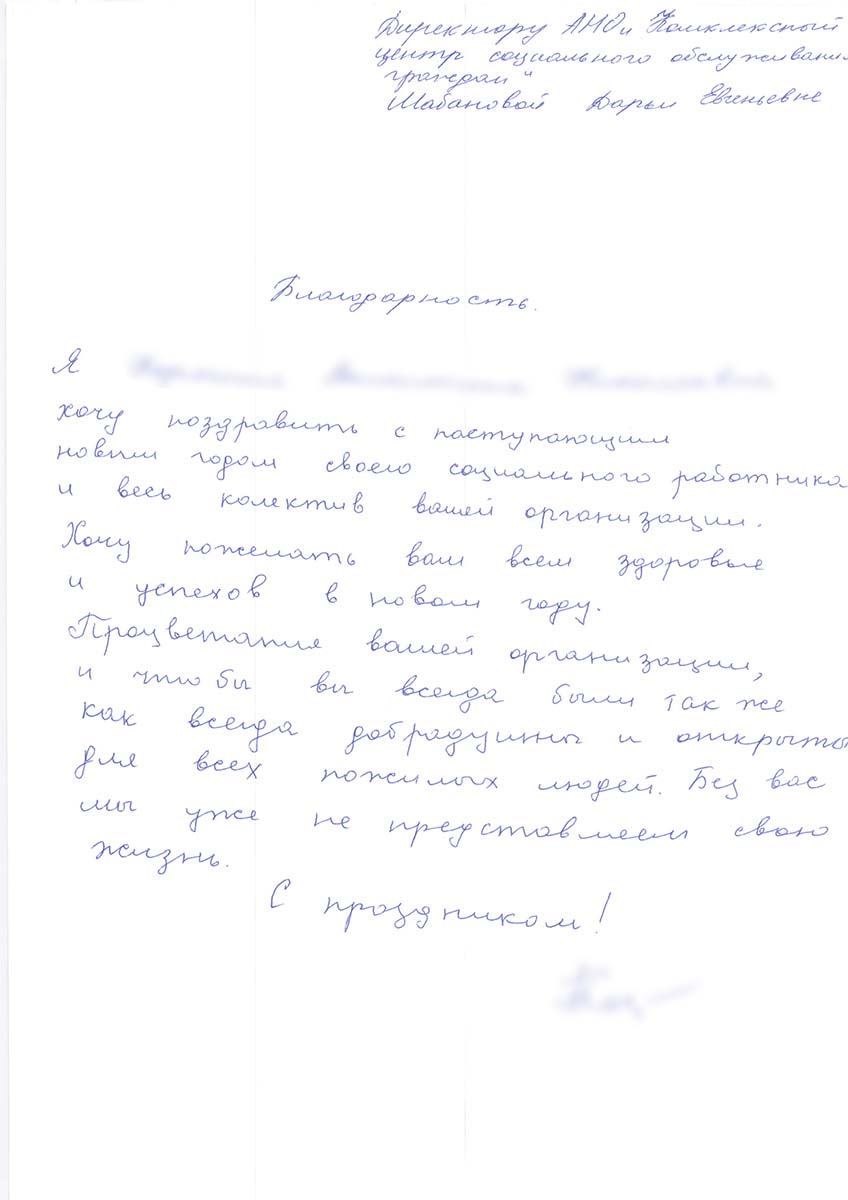 Директору АНО „Комклексный
центр социального обслуживани
граждан"
Шабановой Дарьи Евгеньевне
Благодарность.
Я
хочу поздравить с наступающим
новым годом своего социального работника
и весь колектив вашей организации.
Хочу пожелать вам всем здоровье
и успехов в новом году.
Процветания вашей организации,
и что бы вы всегда были так же
как всегда добрадушны и открыты
для всех пожилых людей. Без вас
мы уже не представляем свою
жизнь.
С праздником!